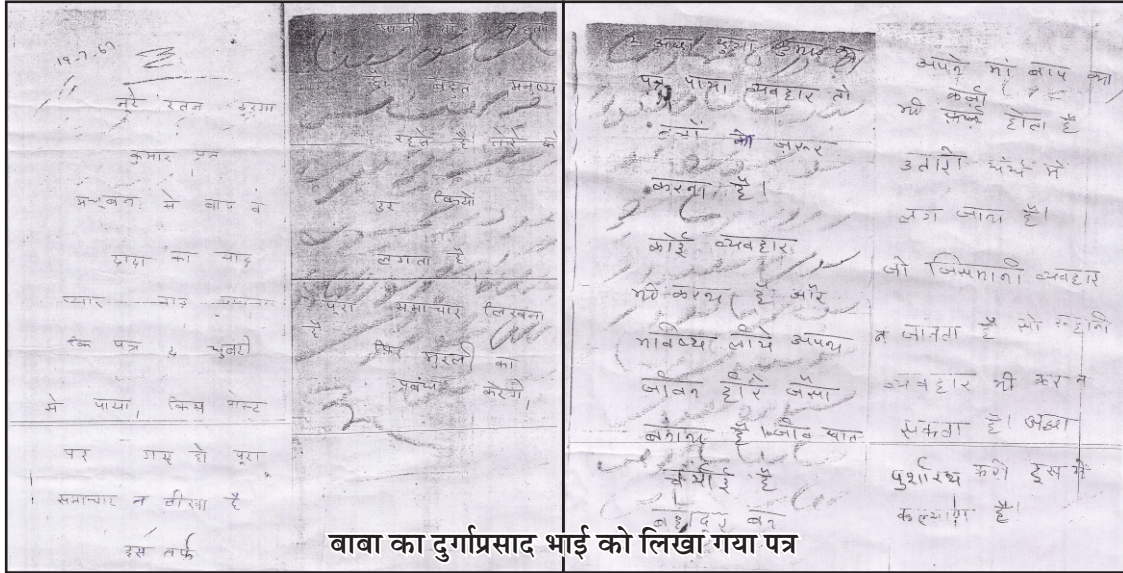 19-7-67
नूरे रतन दुरगा
कुमार प्रत
मधुबन से बाप व
दादा का याद
प्यार बाद
कि पत्र
मे पाया,
पर गए हो पूरा
समाचार न लीखा है
इस तर्फ
मनुष्य
रहते हैं
डर
लगता है
पूरा समाचार लिखना
है
फिर मुरली का
प्रबंध करेंगे,
कुमार का
पत्र पाया व्यवहार तो
बच्चों को ज़रूर
करना है।
कोई व्यवहार
भी करना है और
भविष्य लीये अपना
जीवन हीरे जैसा
बनाना है।
बहादूर बन
अपने मां बाप का
कर्ज़ा
भी कर्ज़ा होता है
उतारी धंधे मे
लग जाना है।
जो जिसमानी व्यवहार
न जानता है सो रूहानि
व्यवहार भी कर न
सकता है। अच्छा
पुर्शारथ करो इस मे
कल्याण है।
बाबा का दुर्गाप्रसाद भाई को लिखा गया पत्र